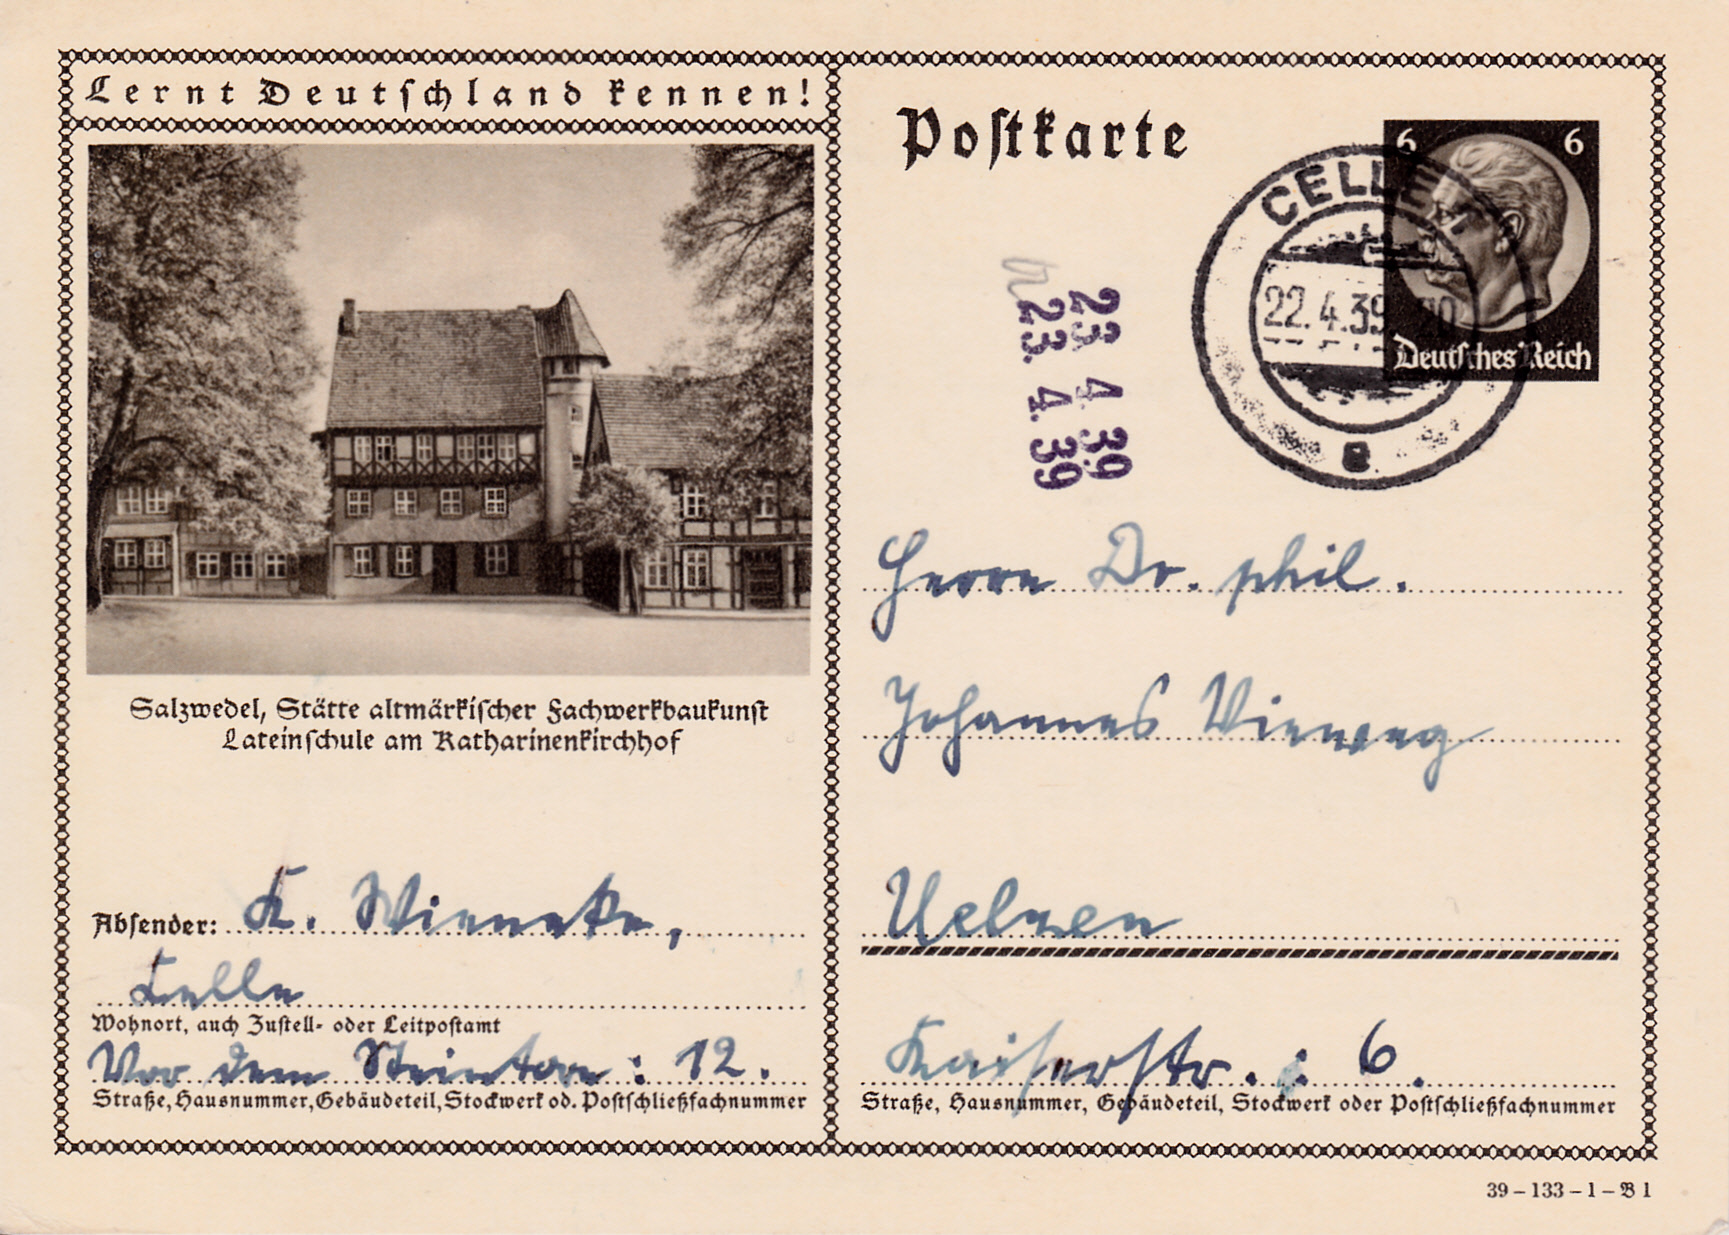 Lernt Deutschland kennen!
Salzwedel, Stätte altmärkischer Fachwerkbaukunst
Lateinschule am Katharinenkirchhof
Absender: K. Wieneke,
Celle
Wohnort, auch Zustell- oder Leitpostamt
Vor dem Steintore: 12.
Straße, Hausnummer, Gebäudeteil, Stockwerk od. Postschließfachnummer
Postkarte
6 6
Deutsches Reich
CELLE
22.4.39
e
23 4 39
23. 4. 39
Herrn Dr. phil.
Johannes Vieweg
Uelzen
Kaiserstr. : 6.
Straße, Hausnummer, Gebäudeteil, Stockwerk oder Postschließfachnummer
39 – 133 – 1 – B 1